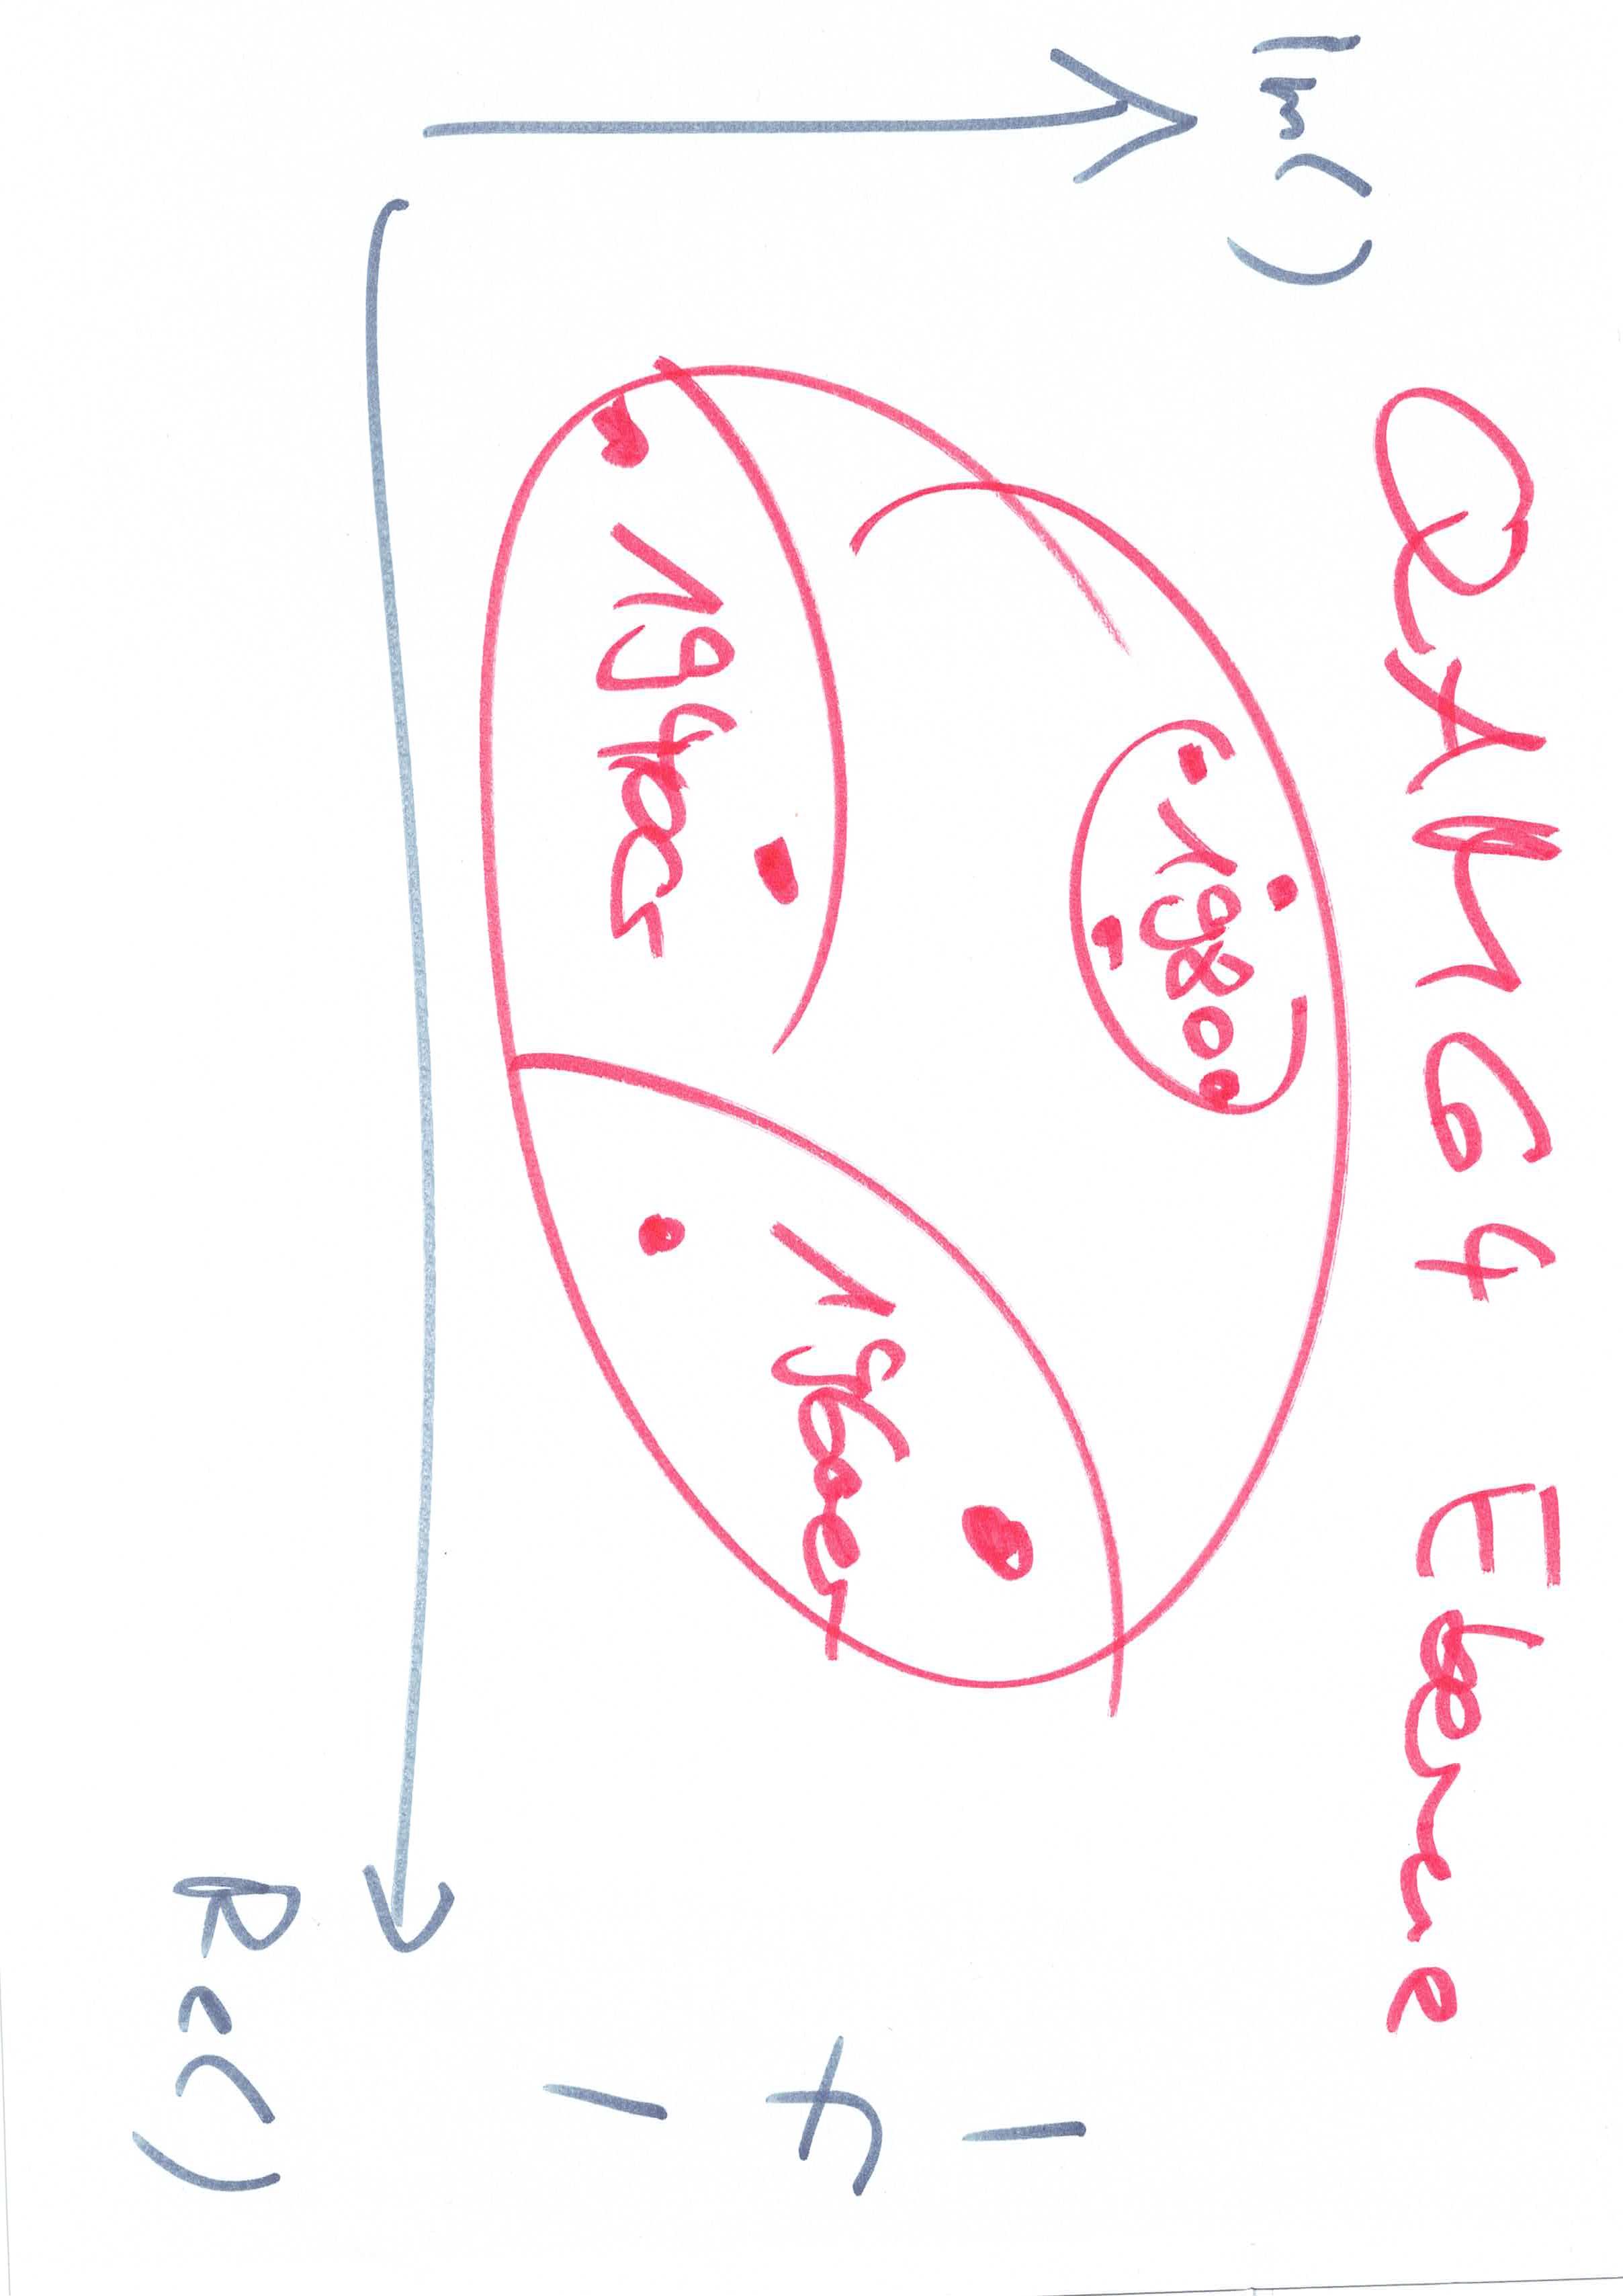 QAM64 Ebene
Im()
1980
1960er
1940er
- f -
Re()